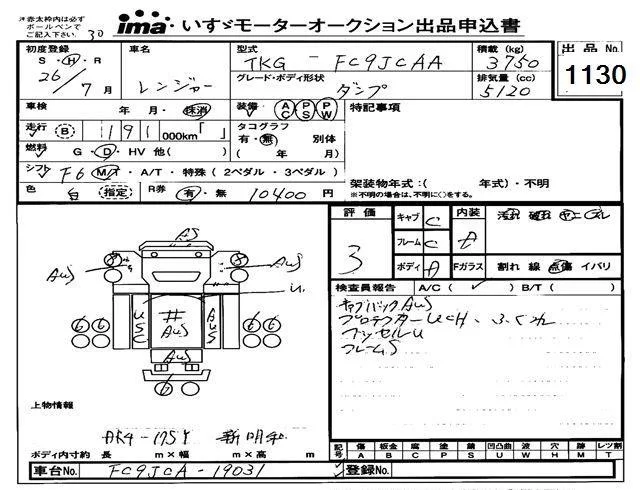 ※赤太枠内は必ず
ボールペンで
ご記入下さい
30
ima いすゞモーターオークション出品申込書
初度登録 車名 型式 積載 (kg) 出品 No.
S・H・R TKG-FC9JCAA 3750
26/7月 レンジャー グレード・ボディ形状 排気量 (cc) 1130
ダンプ 5120
車検 年 月・抹消 装備 AC PS PW 特記事項
走行 (B) 191000km「 」 タコグラフ
有・無 別体
燃料 G・D・HV 他( ) ( 年 月)
シフト F6 M/T・A/T・特殊 (2ペダル・3ペダル)
架装物年式:( 年式)・不明
※不明の場合は、不明に○をする。
色 白 (指定) R券 有・無 10400 円
評価 キャブ C 内装
3 フレーム C A
ボディ A Fガラス 割れ 線 点傷 イバリ
検査員報告 A/C( ✓ ) B/T( )
キャブバックAUS
フレームS
AS
AUS
AUS
U
USC
井
AUS
AUS
AUS
6 6 6 6
上物情報
ボディ内寸約 長 m×幅 m×高 m
記号 傷 板金 腐 塗 錆 凹凸曲 波 穴 跡 レツ割
A B C P S U W H M T
車台No. FC9JCA-19031 登録No.